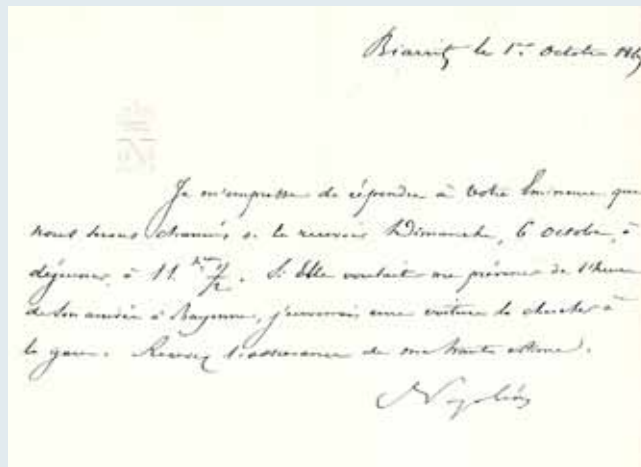 Biarritz le 1er octobre 186
Je m'empresse de répondre à Votre Eminence que
nous serons charmés de la recevoir Dimanche, 6 octobre, à
déjeuner, à 11 hres 1/2. Si Elle voulait me prévenir de l'heure
de son arrivée à Bayonne, j'enverrais une voiture la chercher à
la gare. Recevez l'assurance de ma haute estime.
Napoléon